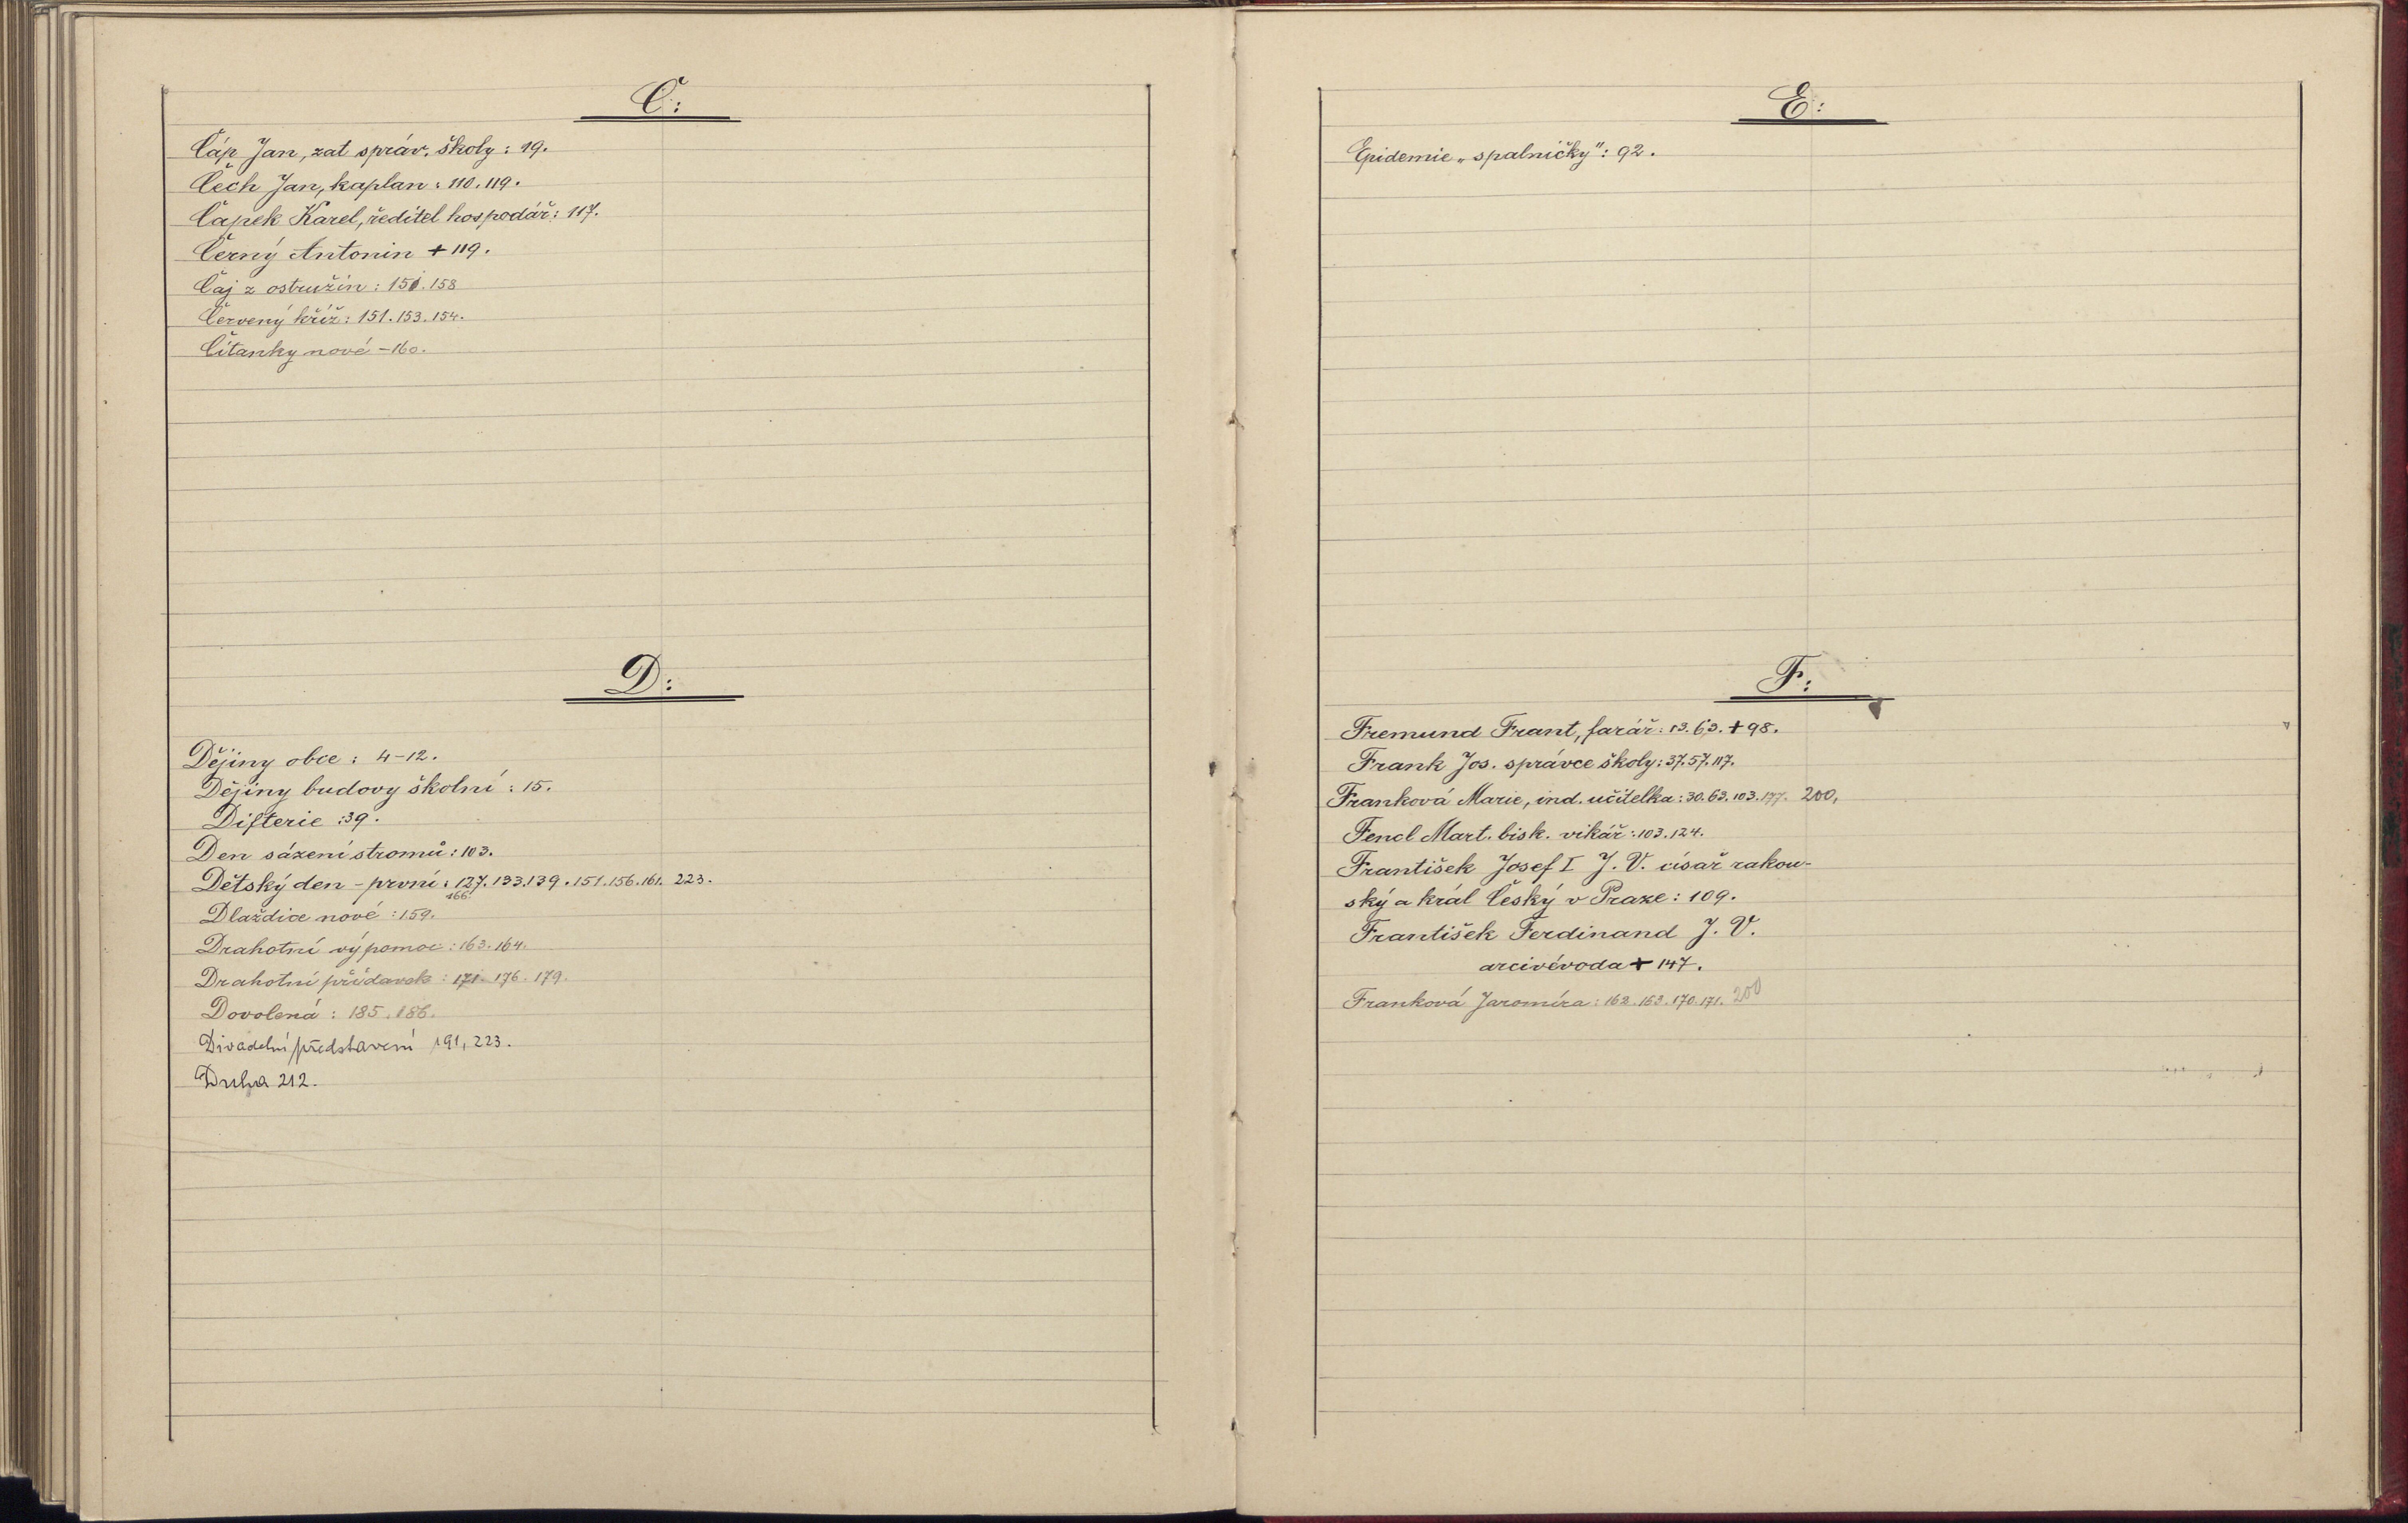 Č:
Čáp Jan, zat správ. školy : 19.
Čech Jan, kaplan : 110. 119.
Čapek Karel, ředitel hospodář : 117.
Černý Antonin + 119.
Čaj z ostružin : 151. 158
Červený kříž : 151. 153. 154.
Čítanky nové - 160.
D:
Dějiny obce : 4-12.
Dějiny budovy školní : 15.
Difterie : 39.
Den sázení stromů : 103.
Dětský den - první : 127. 133. 139. 151. 156. 161. 223.
166.
Dlaždice nové : 159.
Drahotní výpomoc : 163. 164.
Drahotní přídavek : 171. 176. 179.
Dovolená : 185. 186.
Divadelní představení 191, 223.
212.
E:
Epidemie „spalničky" : 92.
F:
Fremund Frant, farář : 13. 63. + 98.
Frank Jos. správce školy : 37. 57. 117.
Franková Marie, ind. učitelka : 30. 63. 103. 177. 200,
Fencl Mart. bisk. vikář : 103. 124.
František Josef I J. V. císař rakou-
ský a král Český v Praze : 109.
František Ferdinand J. V.
arcivévoda + 147.
Franková Jaromíra : 162. 163. 170. 171. 200